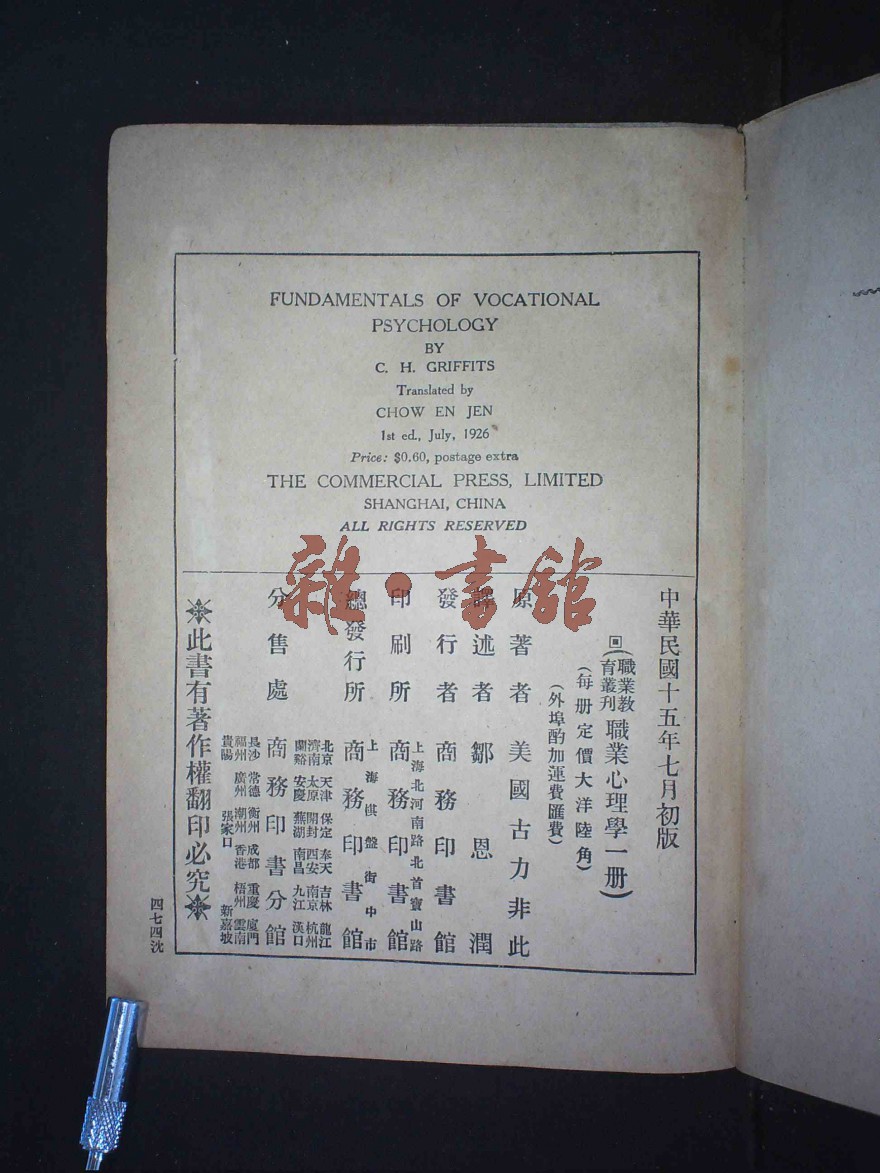 FUNDAMENTALS OF VOCATIONAL
PSYCHOLOGY
BY
C. H. GRIFFITS
Translated by
CHOW EN JEN
1st ed., July, 1926
Price: $0.60, postage extra
THE COMMERCIAL PRESS, LIMITED
SHANGHAI, CHINA
ALL RIGHTS RESERVED
雜·書館
中華民國十五年七月初版
回(職業教育叢刊職業心理學一册)
(每册定價大洋陸角)
(外埠酌加運費匯費)
原著者 美國古力非此
譯述者 鄒恩潤
發行者 商務印書館
印刷所 上海北河南路北首寶山路 商務印書館
總發行所 上海棋盤街中市 商務印書館
分售處 商務印書分館
北京 天津 保定 奉天 吉林 龍江
濟南 太原 開封 西安 南京 杭州
蘭谿 安慶 蕪湖 南昌 九江 漢口
長沙 常德 衡州 成都 重慶 廈門
福州 廣州 潮州 香港 梧州 雲南
貴陽 張家口 新嘉坡
此書有著作權翻印必究
四七四沈